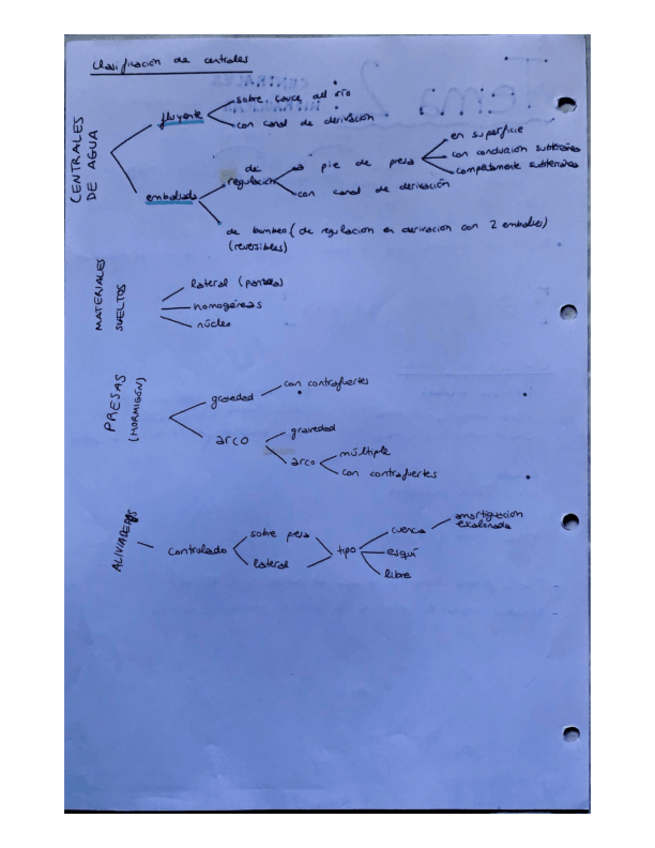 Clasificación de centrales
CENTRALES DE AGUA
fluyente
sobre cauce del río
con canal de derivación
embalsado
de regulación
a pie de presa
en superficie
con conducción subterránea
completamente subterránea
con canal de derivación
de bombeo (de regulación en derivación con 2 embalses)
(reversibles)
MATERIALES SUELTOS
lateral (pantalla)
homogéneas
núcleo
PRESAS
(HORMIGÓN)
gravedad
con contrafuertes
arco
gravedad
arco
múltiple
con contrafuertes
ALIVIADEROS
controlado
sobre presa
lateral
tipo
cuenco
amortiguación
escalonada
esquí
libre